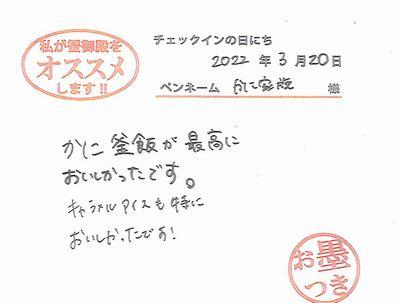 私が蟹御殿を
オススメ
します!!
チェックインの日にち
2022 年 3 月 20日
ペンネーム かに家族 様
かに釜飯が最高に
おいしかったです。
キャラメルアイスも特に
おいしかったです!
お墨
つき